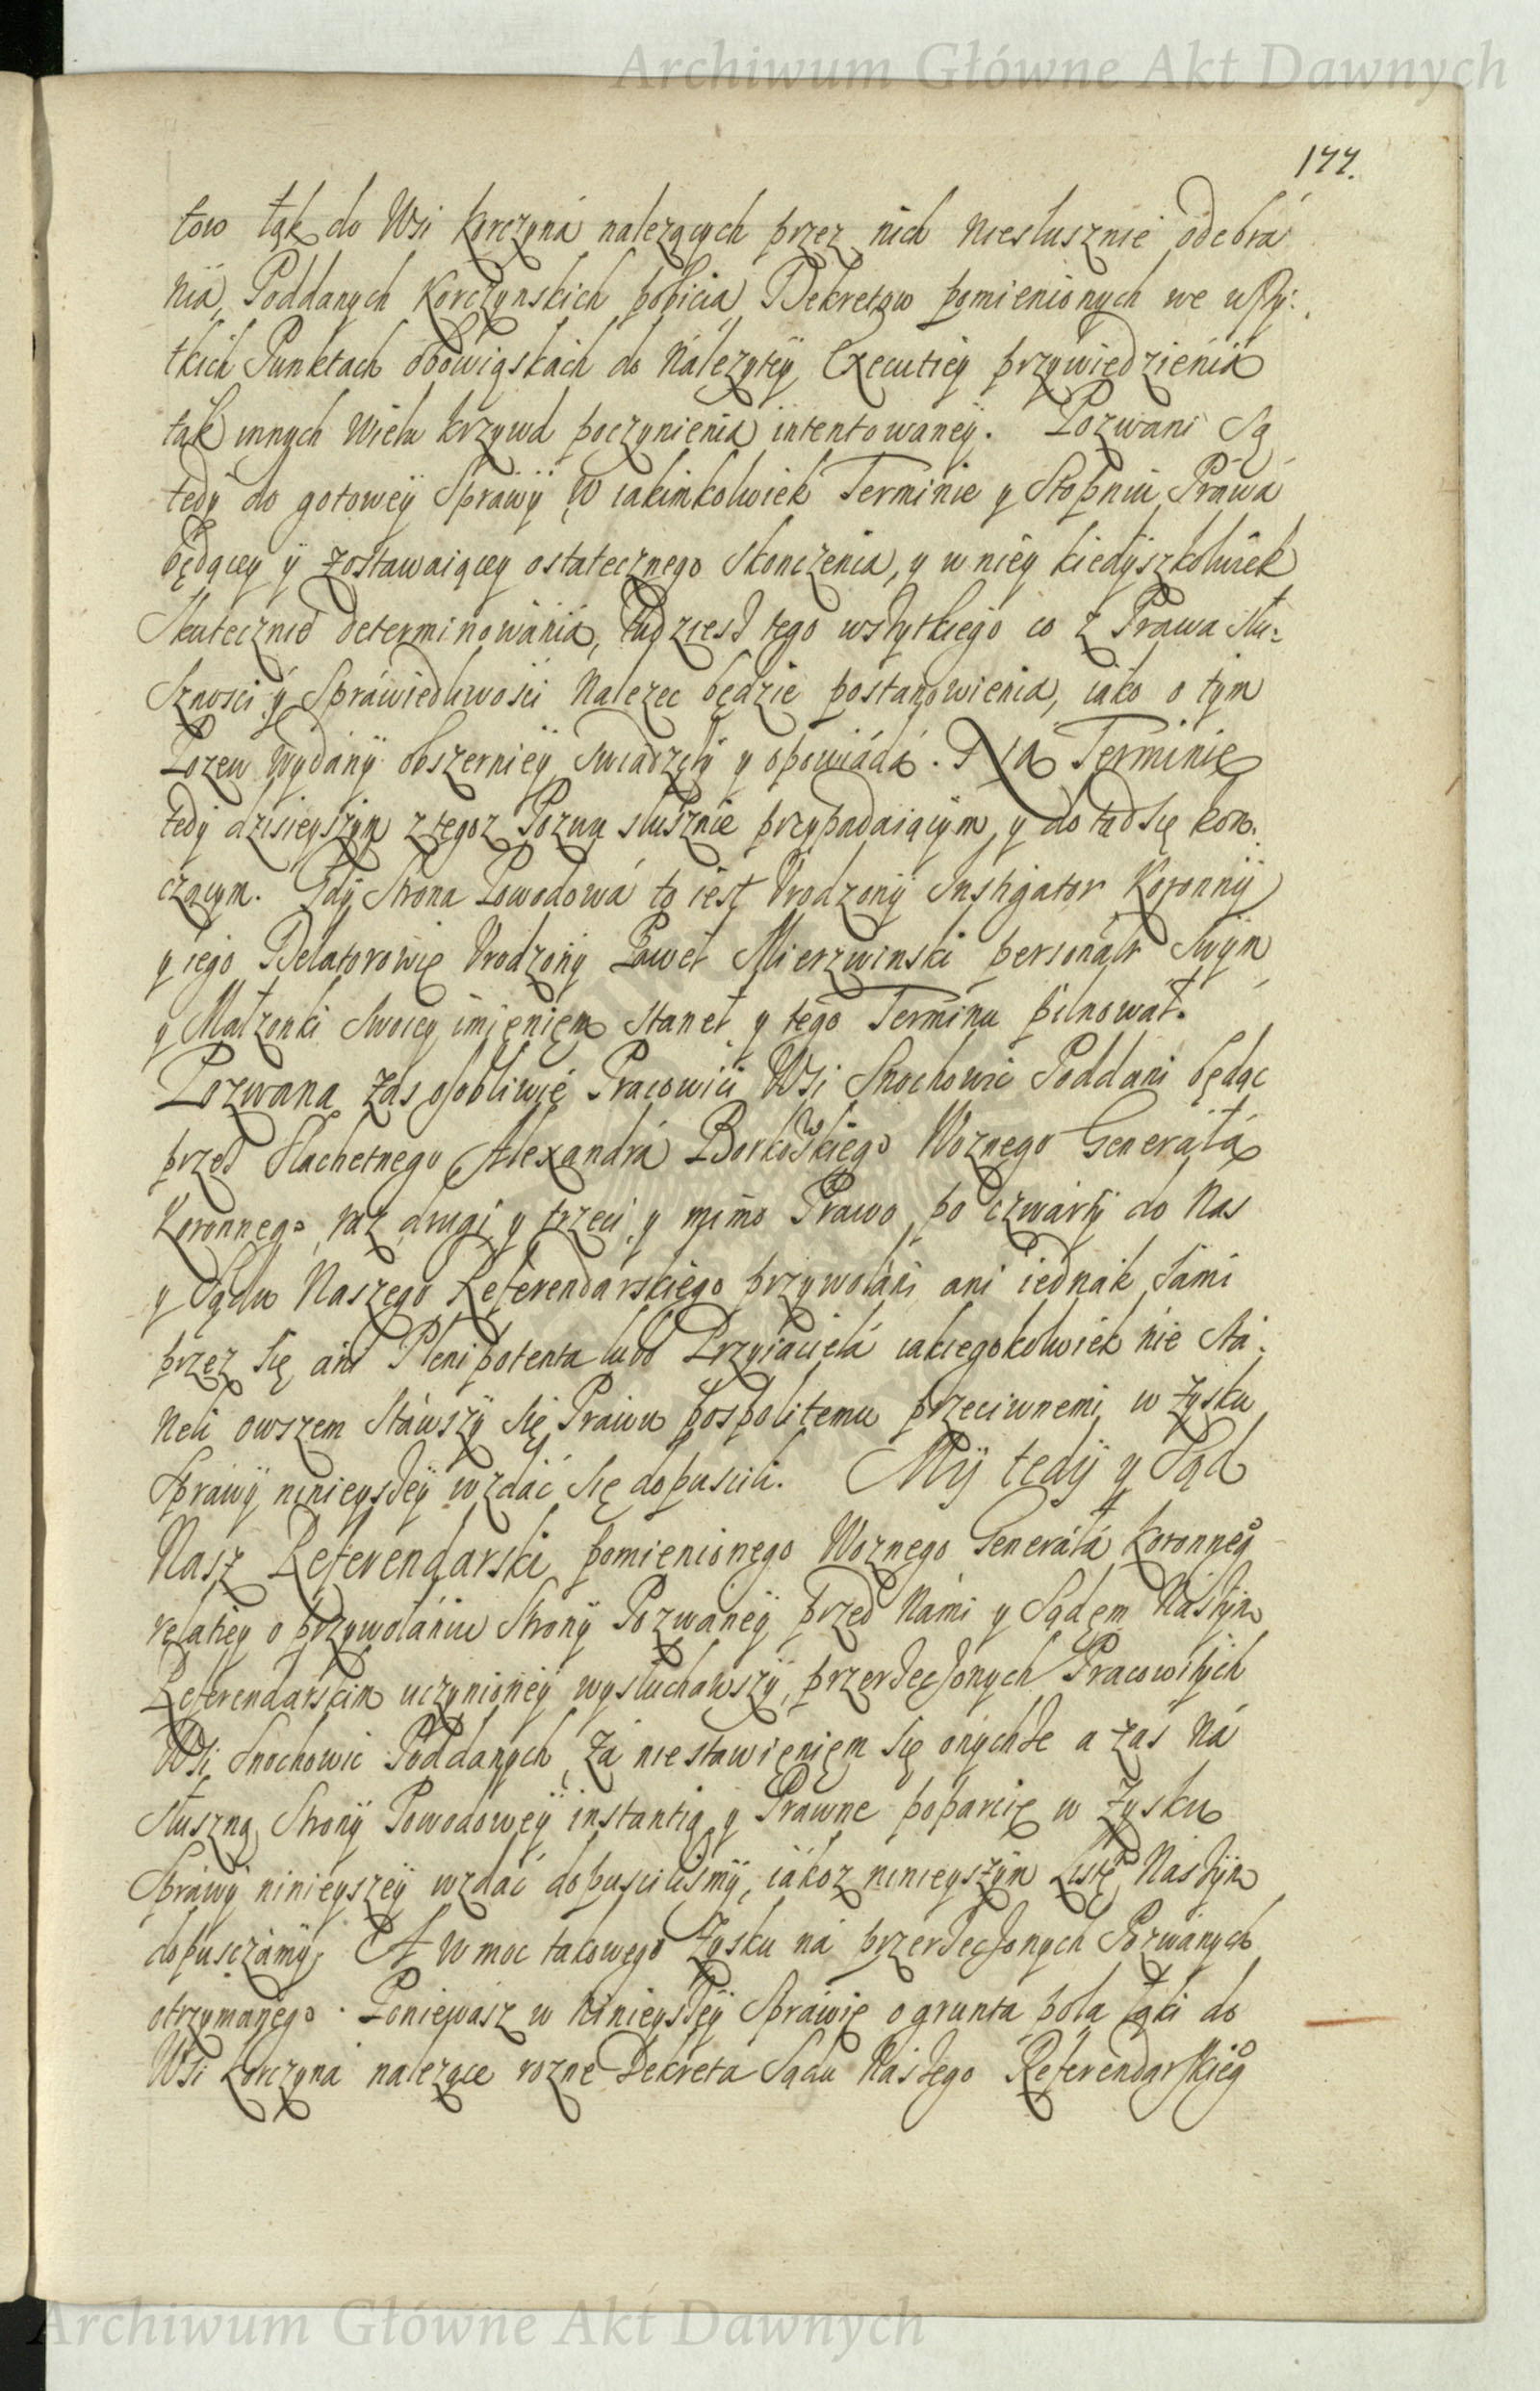 Archiwum Główne Akt Dawnych
177.
tow łąk do Wsi Korczyná nalezących przez nich niesłusznie odebrá
nia, Poddanych Korczynskich pobicia Dekretow pomienionych we wszy:
tkich Punktach obowiąskach do Nálezytey Executiey przywiedzienia
ták innych wielu krzywd poczynienia intentowaney. Pozwani Są
tedy do gotowey Sprawy w iakimkolwiek Terminie y Stopniu Práwá
będącey y zostawaiącey ostatecznego skonczenia, y w niey kiedyszkolwiek
Skutecznie determinowánia, tudziesz tego wszytkiego co z Prawa słu:
Sznosci y Spráwiedliwości Nalezec będzie postánowienia, iáko o tym
Pozew wydány obszerniey swiadzcy y opowiádá. Na Terminie
tedy dzisieyszym z tegoz Pozwu słusznie przypadaiącym, y do tąd się kon:
czącym. Gdy Strona Powodowá to iest Urodzony Instigator Koronny
y iego Delatorowie Urodzony Páweł Mierzwinski personalr Swym
y Małzonki Swoiey imieniem Staneł y tego Terminu pilnował.
Pozwana zas osobliwie Pracowici Wsi Snochowic Poddani będąc
przez Slachetnego Alexandrá Borkowskiego Woznego Generáłá
Koronnego, raz, drugi, y trzeci, y mimo Prawo, po czwárty do Nas
y Sądu Naszego Referendárskiego przywołáni ani iednák sámi
przez się, ani Plenipotenta lubo Przyiacielá iakiegokolwiek nie Stá:
neli owszem Stáwszy się Práwu pospolitemu przeciwnemi w zysku
Spráwy ninieyszey wzdáć się dopuscili. My tedy y Sąd
Nasz Referendarski pomienionego Woznego Generáłá Koronneg°
relatiey o przywołániu Strony Pozwáney przed Námi y Sądem Nászym
Referendárskim uczynioney wysłuchawszy, przerzeczonych Pracowitych
Wsi Snochowic Poddanych, zá niestawieniem się onychze a zás ná
Słuszną Strony Powodowey instantią y Prawne poparcie w zysku
Spráwy ninieyszey wzdáć dopuscilismy, iákoz ninieyszym Liste Naszym
dopusczámy. A w moc takowego zysku ná przerzeczonych Pozwánych
otrzymánego. Poniewasz w ninieyszey Spráwie o grunta pola łąki do
Wsi Korczyná nalezące rozne Dekreta Sądu Naszego Referendarskieg°
Archiwum Główne Akt Dawnych